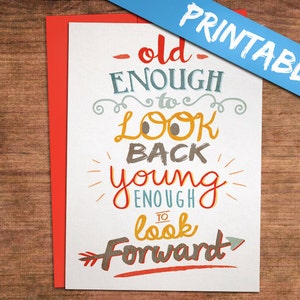 PRINTABLE
old
ENOUGH
to
LOOK
BACK
young
ENOUGH
TO
look
Forward